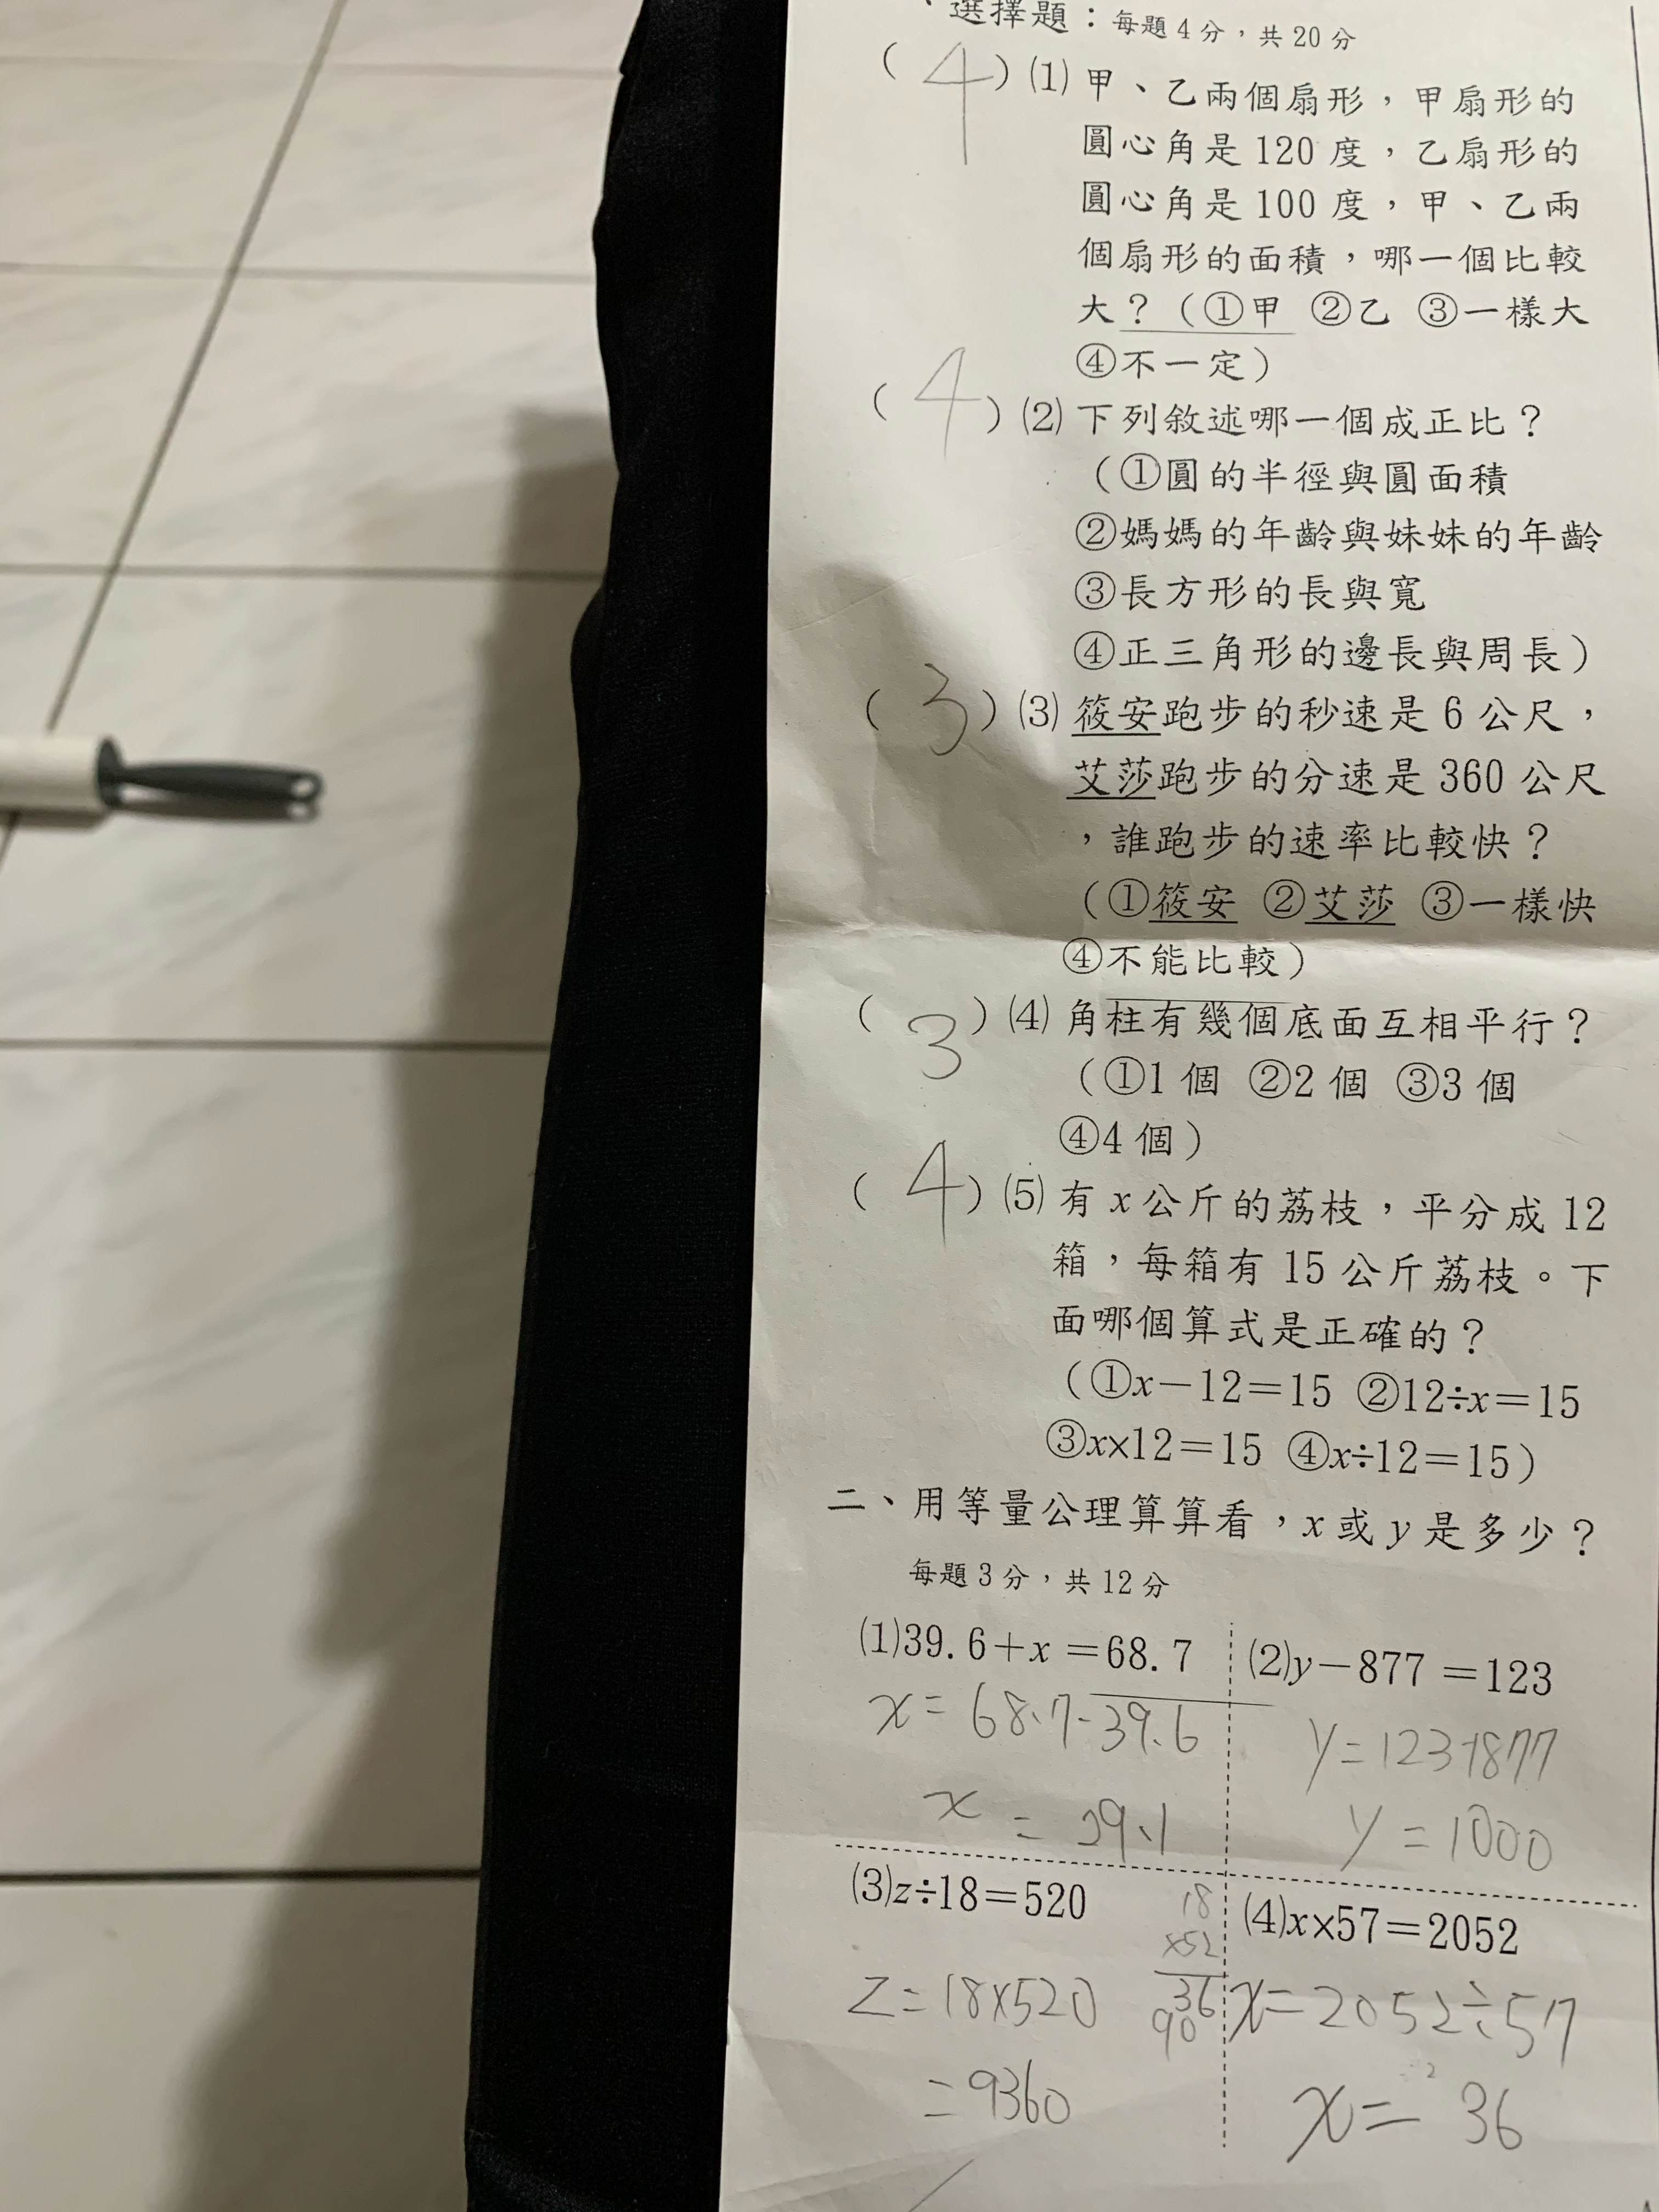 、選擇題：每題4分，共20分
( 4 ) ⑴ 甲、乙兩個扇形，甲扇形的
圓心角是120度，乙扇形的
圓心角是100度，甲、乙兩
個扇形的面積，哪一個比較
大？（①甲 ②乙 ③一樣大
④不一定）
( 4 ) ⑵ 下列敘述哪一個成正比？
（①圓的半徑與圓面積
②媽媽的年齡與妹妹的年齡
③長方形的長與寬
④正三角形的邊長與周長）
( 3 ) ⑶ 筱安跑步的秒速是6公尺，
艾莎跑步的分速是360公尺
，誰跑步的速率比較快？
（①筱安 ②艾莎 ③一樣快
④不能比較）
( 3 ) ⑷ 角柱有幾個底面互相平行？
（①1個 ②2個 ③3個
④4個）
( 4 ) ⑸ 有x公斤的荔枝，平分成12
箱，每箱有15公斤荔枝。下
面哪個算式是正確的？
（①x－12＝15 ②12÷x＝15
③x×12＝15 ④x÷12＝15）
二、用等量公理算算看，x或y是多少？
每題3分，共12分
⑴39.6＋x＝68.7
x=68.7-39.6
x=29.1
⑵y－877＝123
y=123+877
y=1000
⑶z÷18＝520
18
×52
36
90
z=18×520
=9360
⑷x×57＝2052
x=2052÷57
x=36